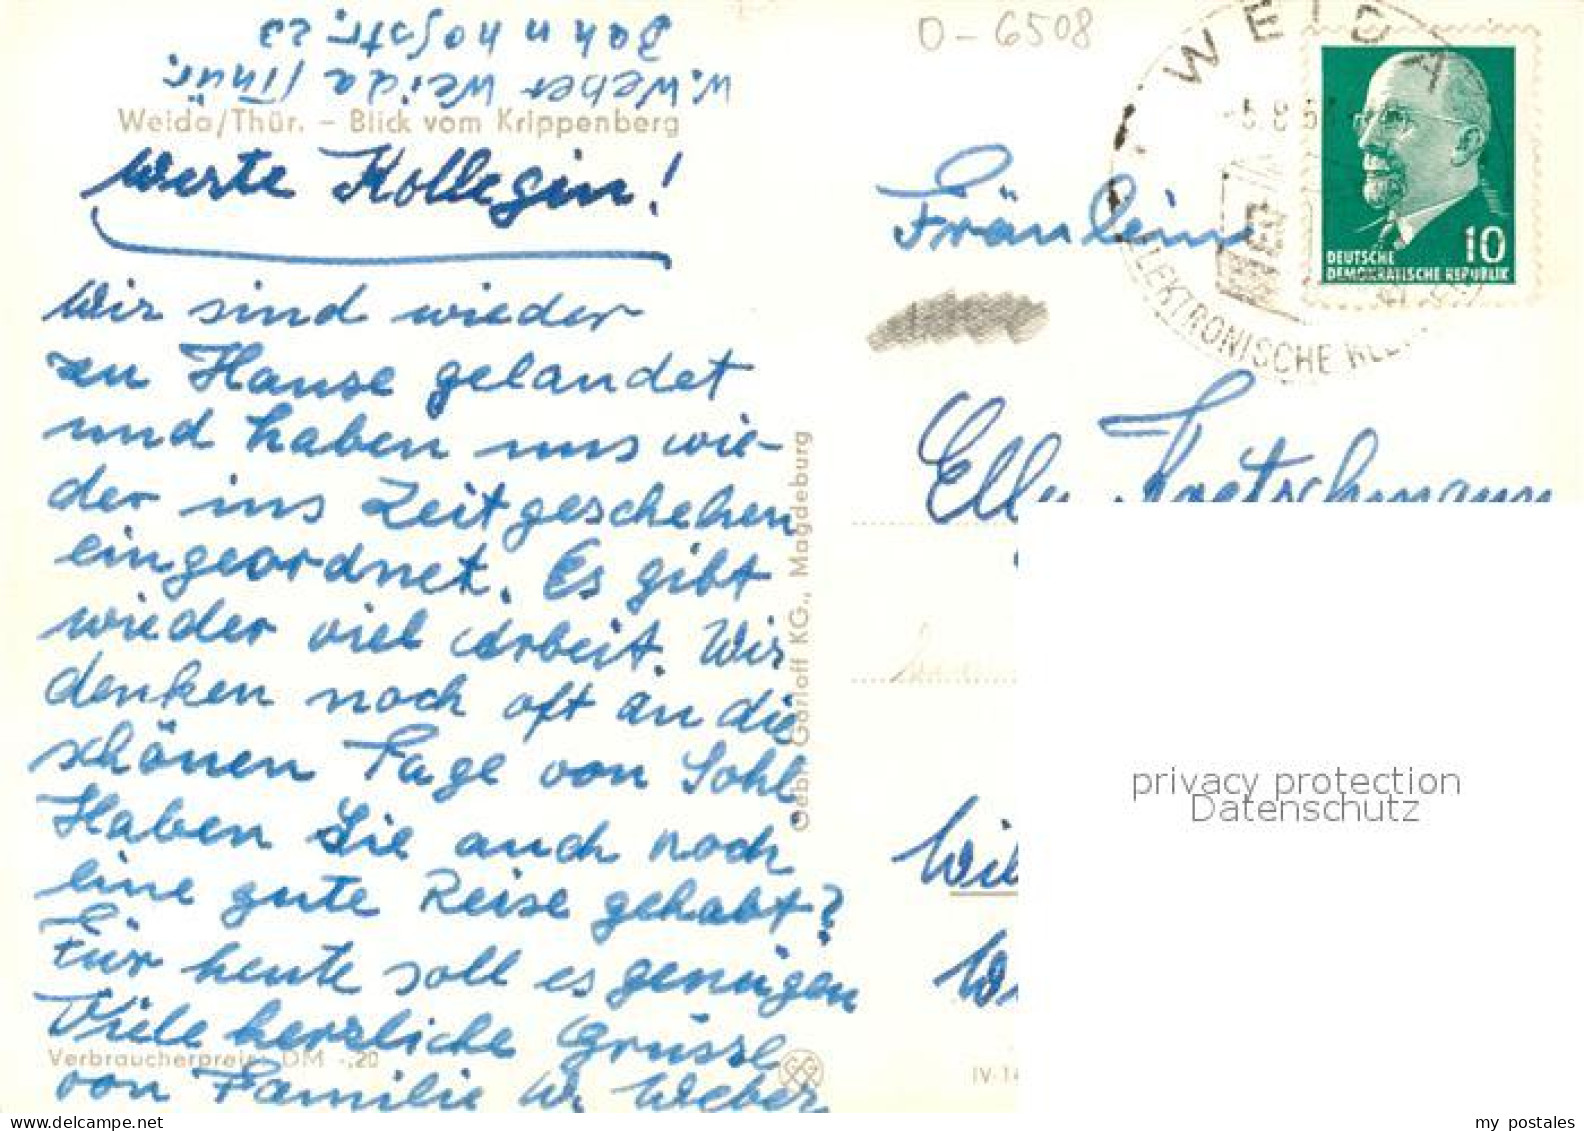 W. Weber Weida/Thür.
Bahnhofstr. 23
Weida/Thür. – Blick vom Krippenberg
Werte Kollegin!
Wir sind wieder
zu Hause gelandet
und haben uns wie-
der ins Zeitgeschehen
eingeordnet. Es gibt
wieder viel Arbeit. Wir
denken noch oft an die
schönen Tage von Sohl
Haben Sie auch noch
eine gute Reise gehabt?
Für heute soll es genügen
Viele herzliche Grüsse
von Familie W. Weber
Verbraucherpreis: DM -,20
Gebr. Garloff KG., Magdeburg
O-6508
WEIDA
ELEKTRONISCHE
10
DEUTSCHE
DEMOKRATISCHE REPUBLIK
Fräulein
Elly
IV-14
privacy protection
Datenschutz
my postales